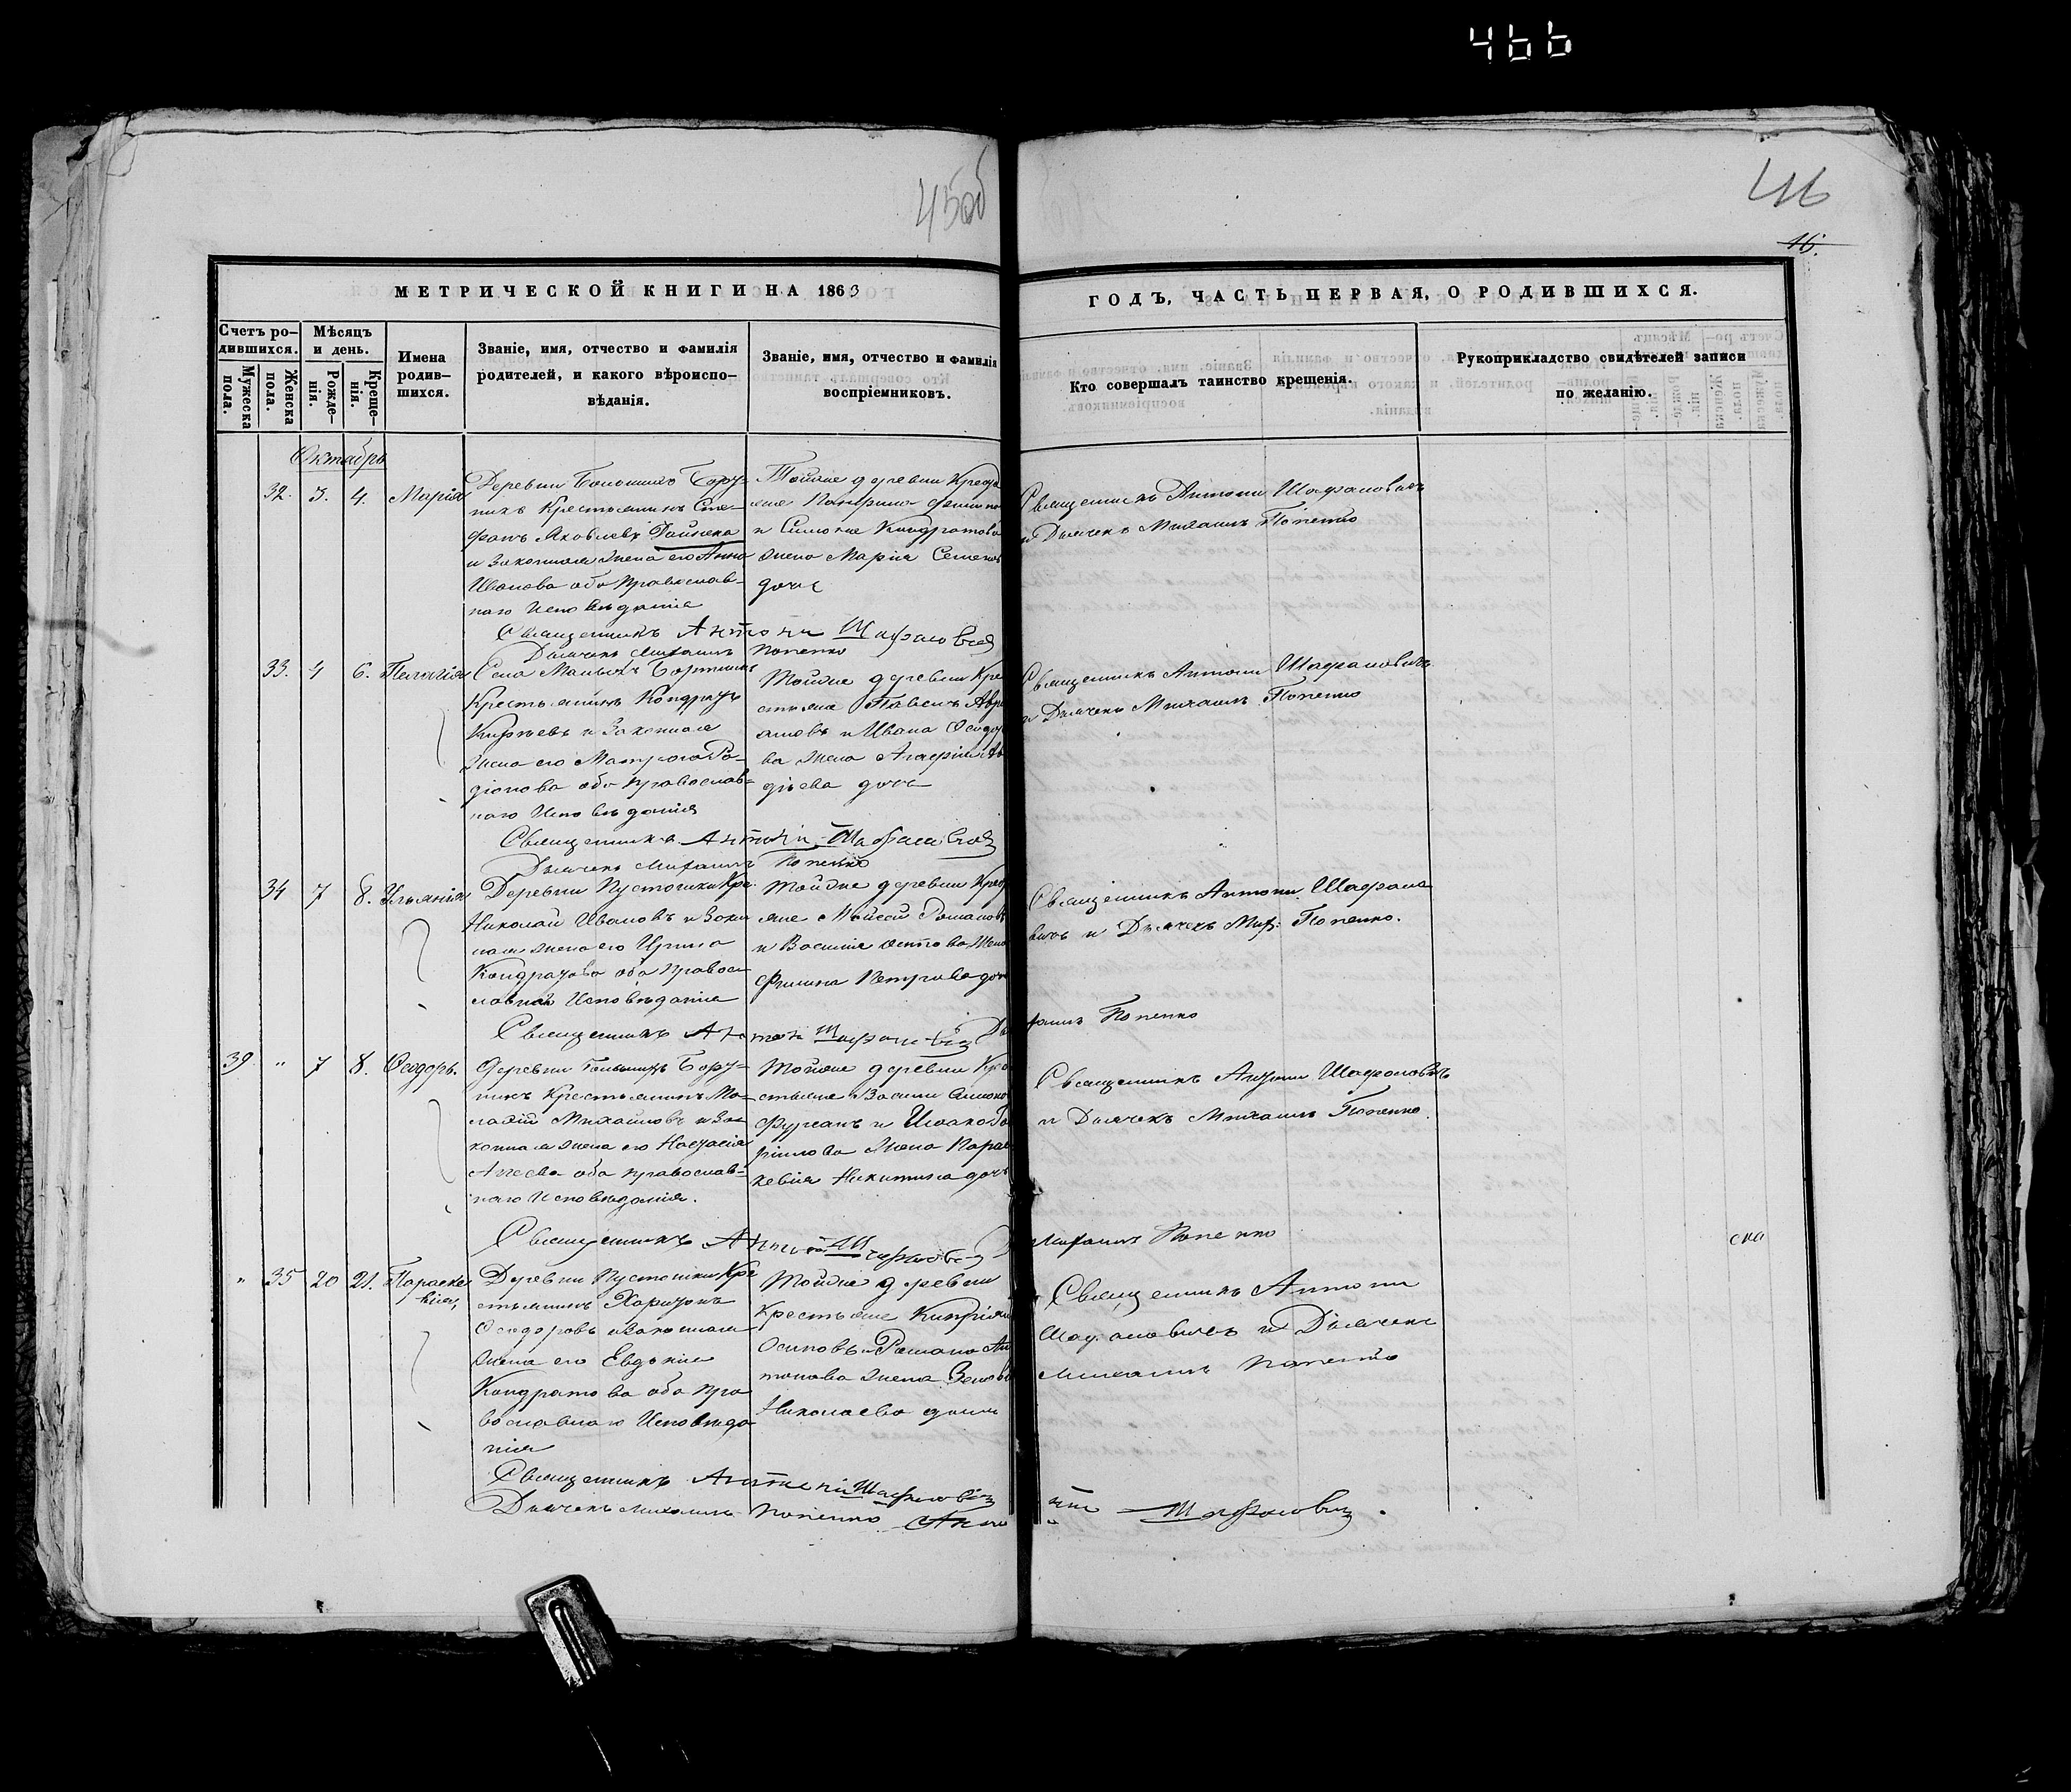 466
45об
46
16.
МЕТРИЧЕСКОЙ КНИГИ НА 1863
ГОДЪ, ЧАСТЬ ПЕРВАЯ, О РОДИВШИХСЯ.
Счетъ ро–
дившихся.
Мужеска
пола.
Женска
пола.
Мѣсяцъ
и день.
Рожде–
нія.
Креще–
нія.
Имена
родив–
шихся.
Званіе, имя, отчество и фамилія
родителей, и какого вѣроиспо–
вѣданія.
Званіе, имя, отчество и фамилія
воспріемниковъ.
Кто совершалъ таинство крещенія.
Рукоприкладство свидѣтелей записи
по желанію.
Октябрь
32. 3. 4. Марія
Деревни
никъ Крестьянинъ Сте–
фанъ Яковлевъ Дайнека
и Законная жена его Анна
Иванова оба православ–
наго Исповѣданія
Тойже деревни
и Симона Кондратова
жена Марія Семенова
дочь
Священникъ Антони Шафановичъ
и Дьячекъ Михаилъ Попенко
Священникъ Антони Шафановичъ
Дьячекъ Михаилъ Попенко
33. 4 6. Пелагія
Села Малыхъ Бортникъ
Крестьянинъ Кондратъ
Киреевъ и Законная
жена его Матрона Ро–
діонова оба православ–
наго Исповѣданія
Тойже деревни Кре
стьяне Павелъ Авра
амовъ и Ивана Ѳедор
ва жена Агафія Ав
дѣева дочь
Священникъ Антони Шафановичъ
и Дьячекъ Михаилъ Попенко
Священникъ Антони Шафановичъ
Дьячекъ Михаилъ Попенко
34 7 8. Ульянія
Деревни Пустошки Кре
Николай Ивановъ и Закон
ная жена его Ирина
Кондратова оба правос
лавнаго Исповѣданія
Тойже деревни
яне Мойсей Романовъ
и Василія жена
Петрова дочь
Священникъ Антони Шафана
вичъ и Дьячекъ Мих: Попенко.
Священникъ Антони Шафановичъ
хаилъ Попенко
39 " 7 8. Ѳеодоръ.
Деревни
никъ Крестьянинъ Ма–
лафій Михайловъ и За–
конная жена его Настасія
Агеева оба православ–
наго Исповѣданія.
Тойже деревни Кре
стьяне Василій
и Исаака
жена Парас
кевія Никитина дочь
Священникъ Антони Шафановичъ
и Дьячекъ Михаилъ Попенко.
Священникъ Антони Шафановичъ
Михаилъ Попенко
" 35 20 21. Параске
вія,
Деревни Пустошки Кре
стьянинъ Харитонъ
Ѳеодоровъ и Законная
жена его Евдокія
Кондратова оба пра
вославнаго Исповѣда
нія
Тойже деревни
Крестьяне Кипріянъ
Осиповъ и Романа Ан
тонова жена
Николаева дочь
Священникъ Антони
Шафановичъ и Дьячекъ
Михаилъ Попенко
Священникъ Антоній Шафановичъ
Дьячекъ Михаилъ Попенко
Шафановичъ.